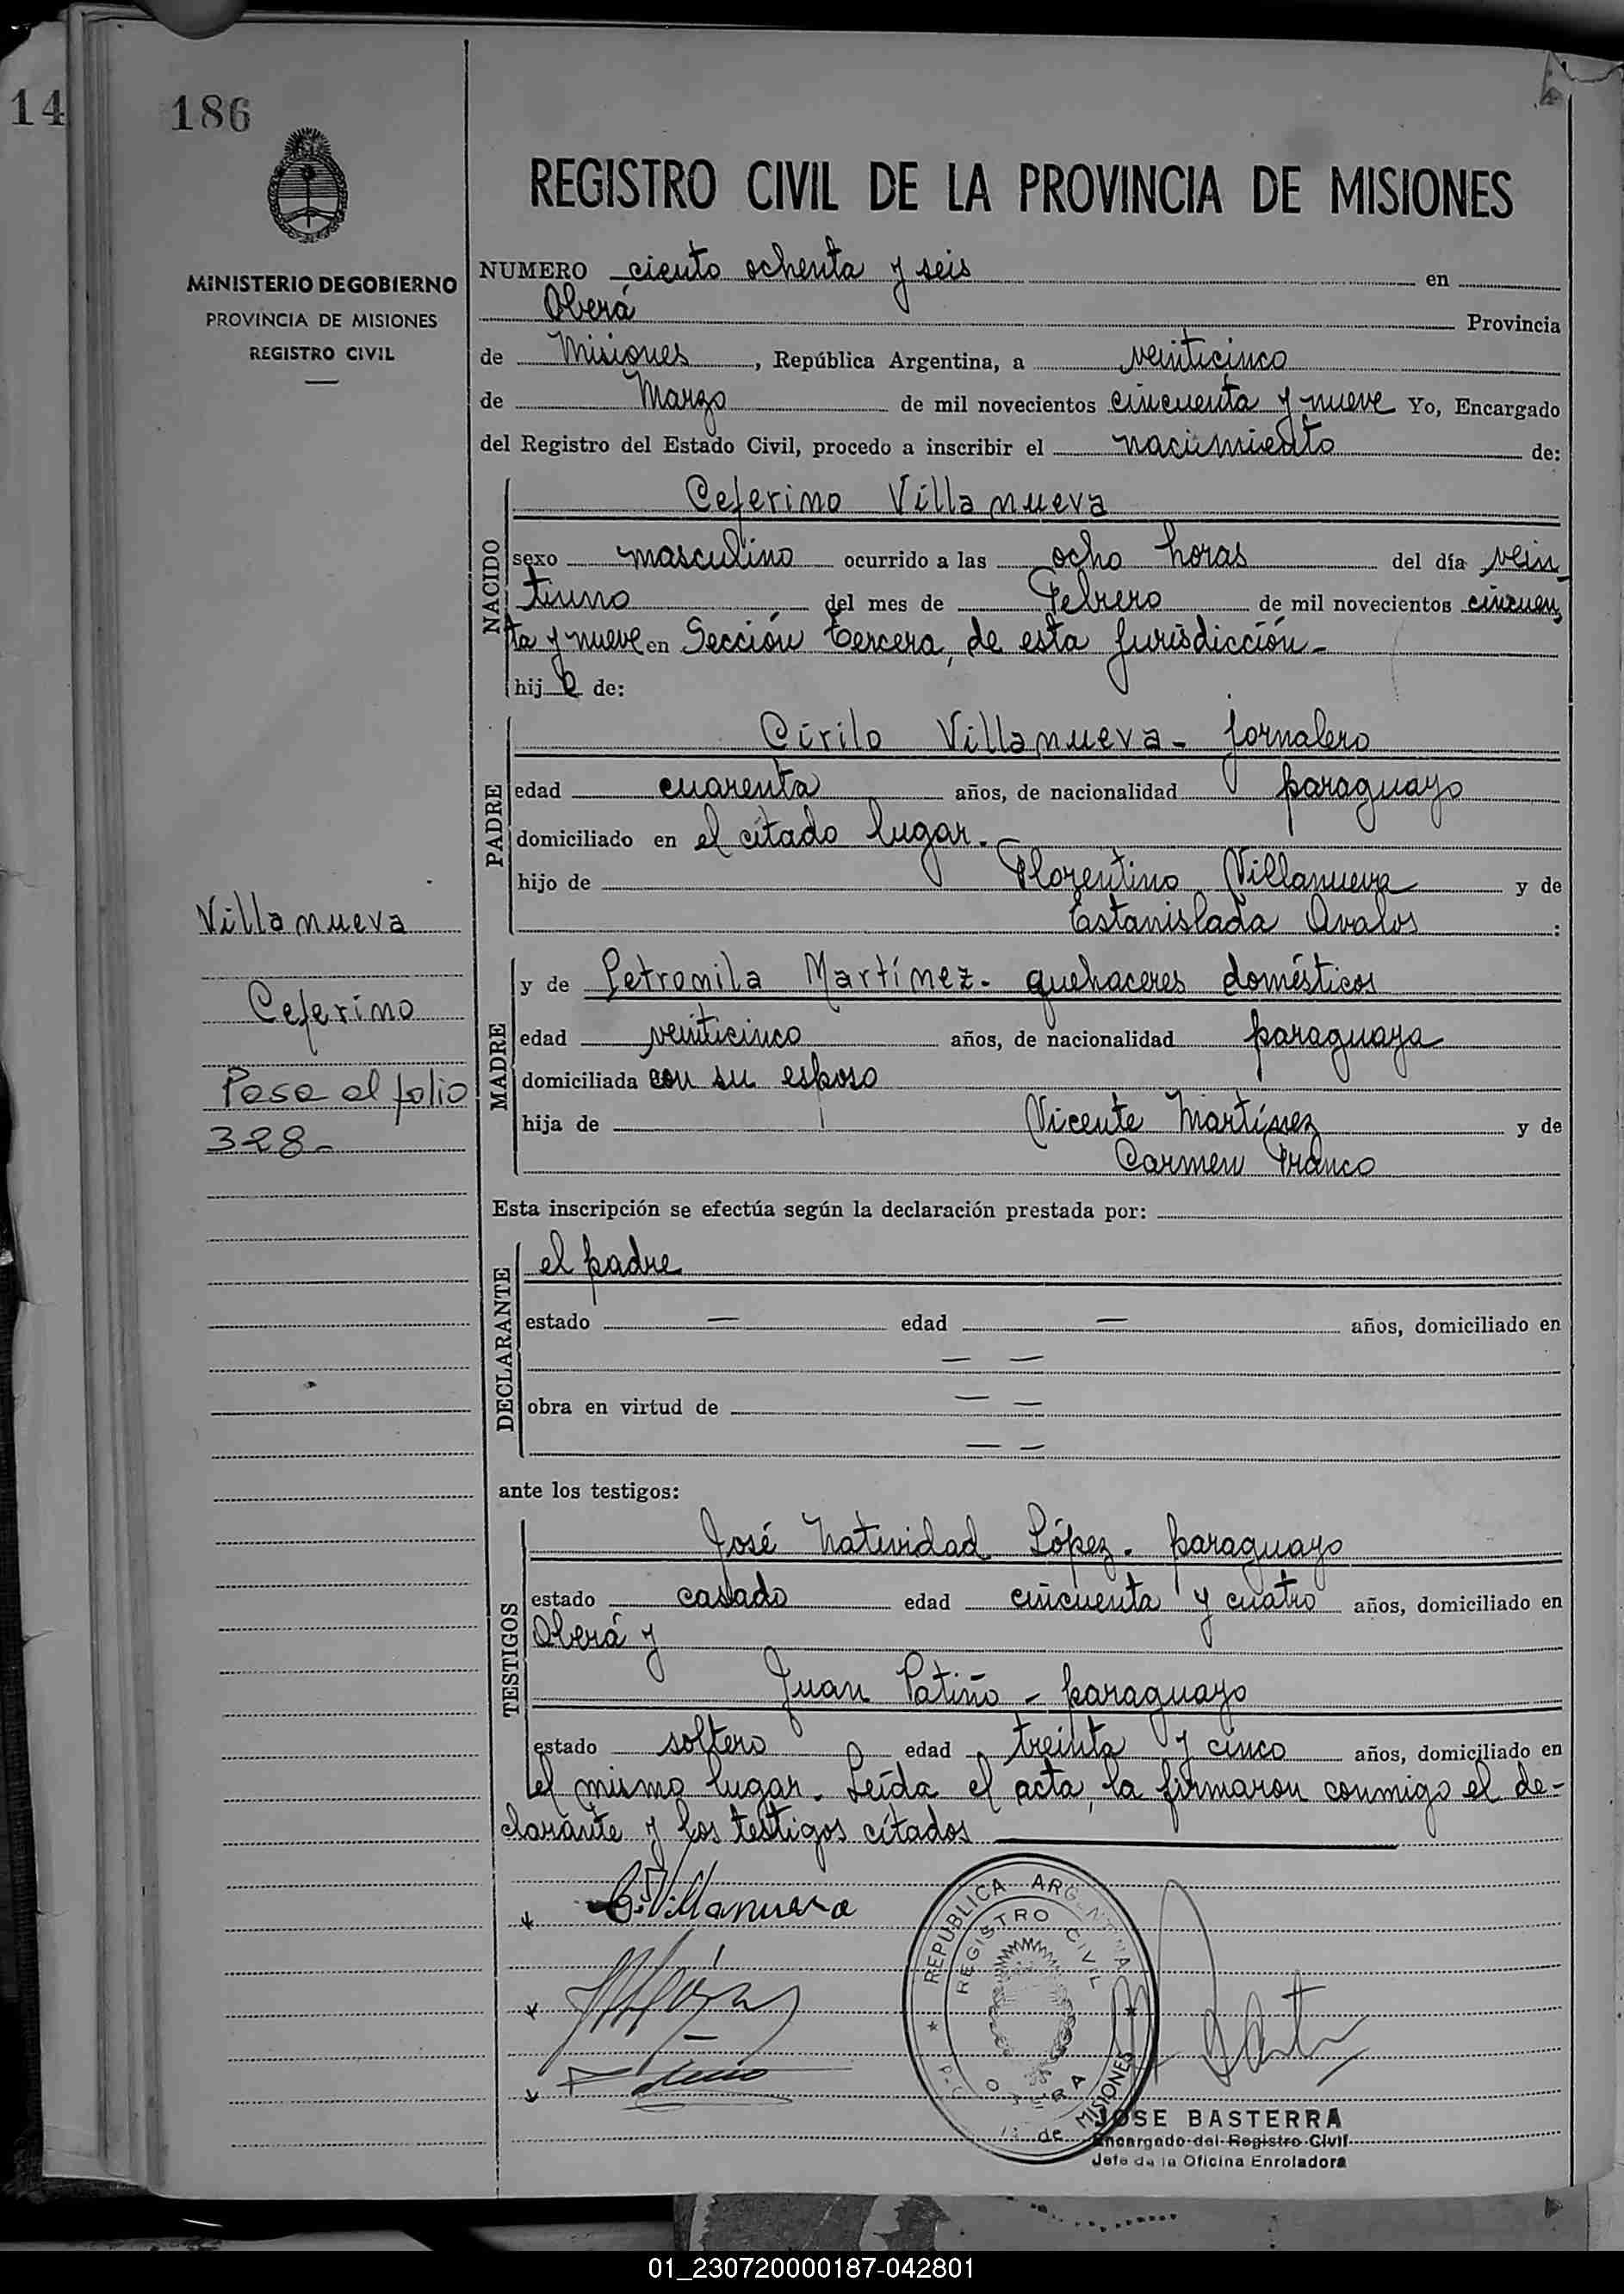 14
186
MINISTERIO DE GOBIERNO
PROVINCIA DE MISIONES
REGISTRO CIVIL
REGISTRO CIVIL DE LA PROVINCIA DE MISIONES
NUMERO ciento ochenta y seis en
Oberá Provincia
de Misiones, República Argentina, a veinticinco
de Marzo de mil novecientos cincuenta y nueve Yo, Encargado
del Registro del Estado Civil, procedo a inscribir el nacimiento de:
NACIDO
Ceferino Villanueva
sexo masculino ocurrido a las ocho horas del día vein-
tiuno del mes de Febrero de mil novecientos cincuen
ta y nueve en Sección tercera, de esta jurisdicción-
hijo de:
PADRE
Cirilo Villanueva- jornalero
edad cuarenta años, de nacionalidad paraguayo
domiciliado en el citado lugar.
hijo de Florentino Villanueva y de
Estanislada Avalos :
MADRE
y de Petronila Martínez- quehaceres domésticos
edad veinticinco años, de nacionalidad paraguaya
domiciliada con su esposo
hija de Vicente Martínez y de
Carmen Franco
Villanueva
Ceferino
Pasa al folio
328-
Esta inscripción se efectúa según la declaración prestada por:
DECLARANTE
el padre
estado — edad — años, domiciliado en
— —
obra en virtud de — —
— —
ante los testigos:
TESTIGOS
José Natividad López- paraguayo
estado casado edad cincuenta y cuatro años, domiciliado en
Oberá y
Juan Patiño - paraguayo
estado soltero edad treinta y cinco años, domiciliado en
el mismo lugar. Leída el acta, la firmaron conmigo el de-
clarante y los testigos citados
C. Villanueva
REPUBLICA ARGENTINA
REGISTRO CIVIL
OBERA
de MISIONES
JOSE BASTERRA
Encargado del Registro Civil
Jefe de la Oficina Enroladora
01_230720000187-042801